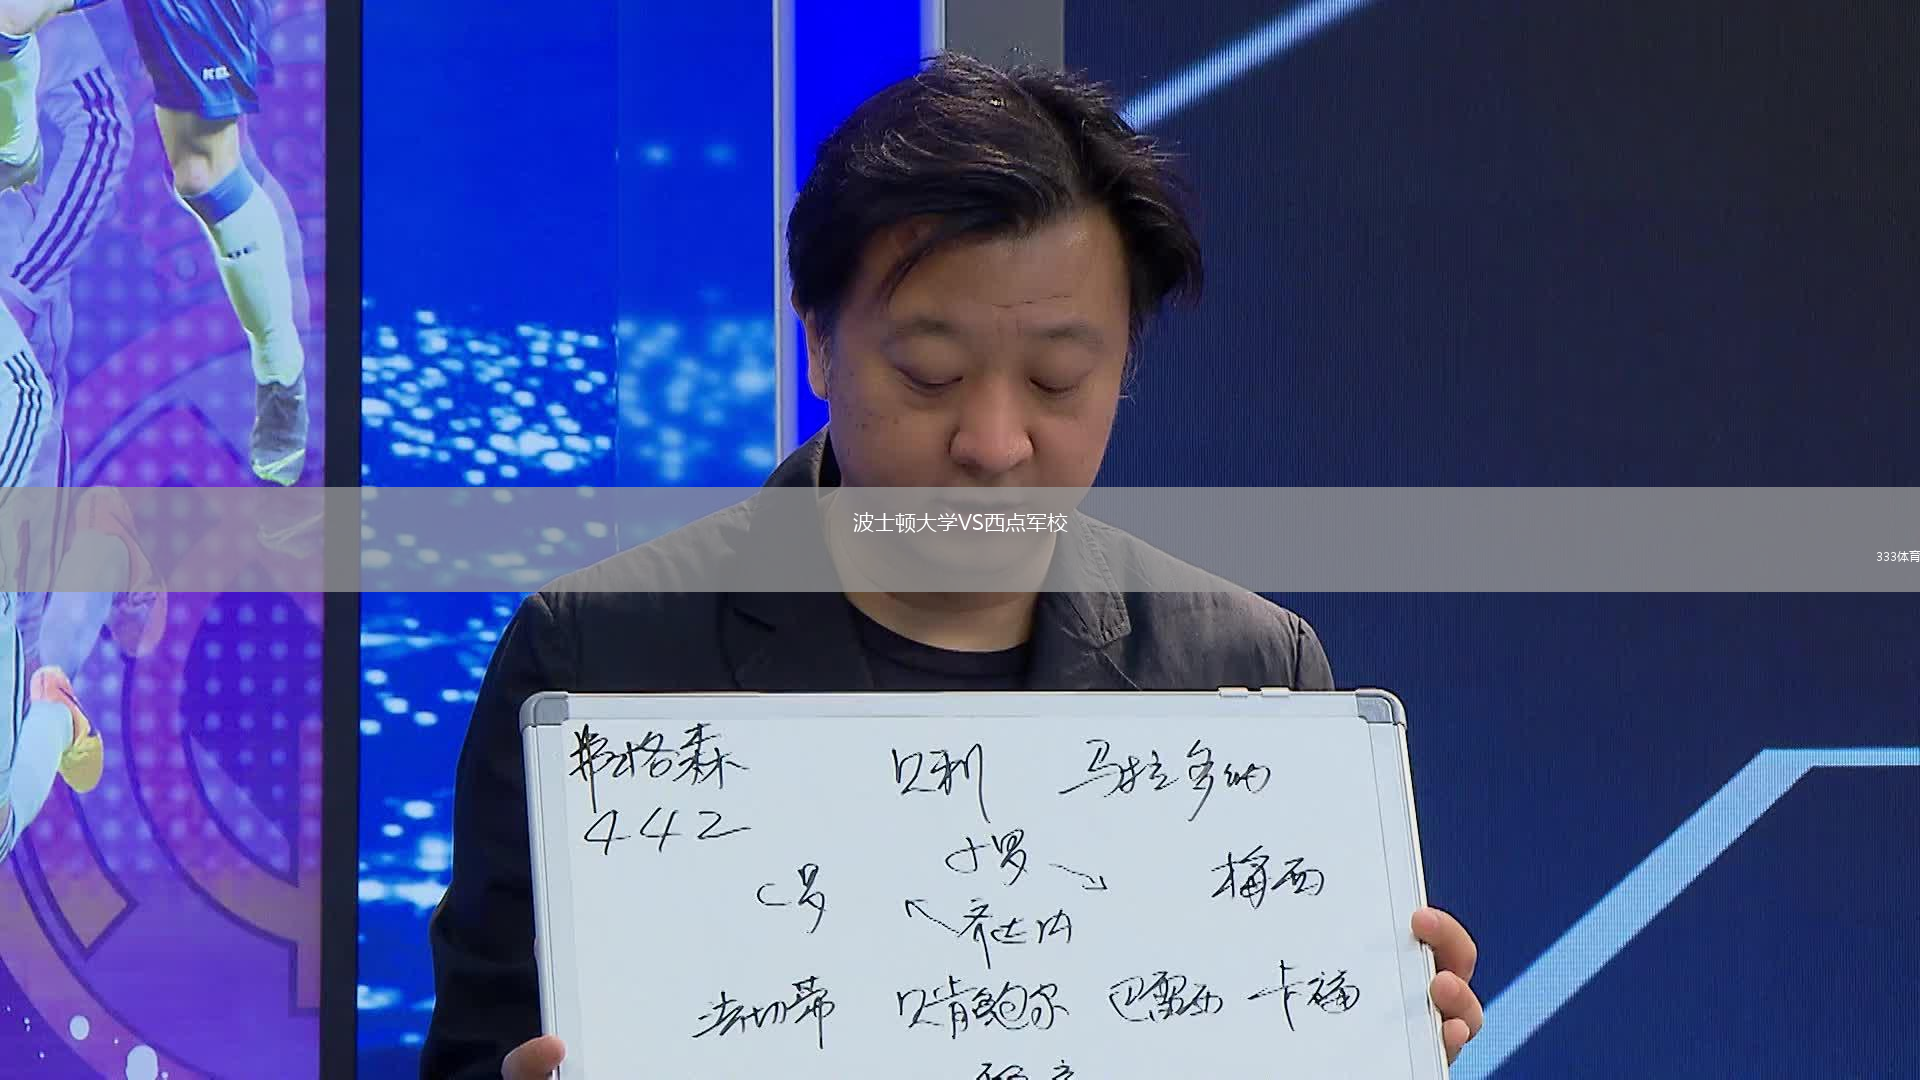 波士顿大学VS西点军校
333体育
弗格森 贝利 马拉多纳
442
小罗
C罗 梅西
齐达内
法切蒂 贝肯鲍尔 巴雷西 卡福